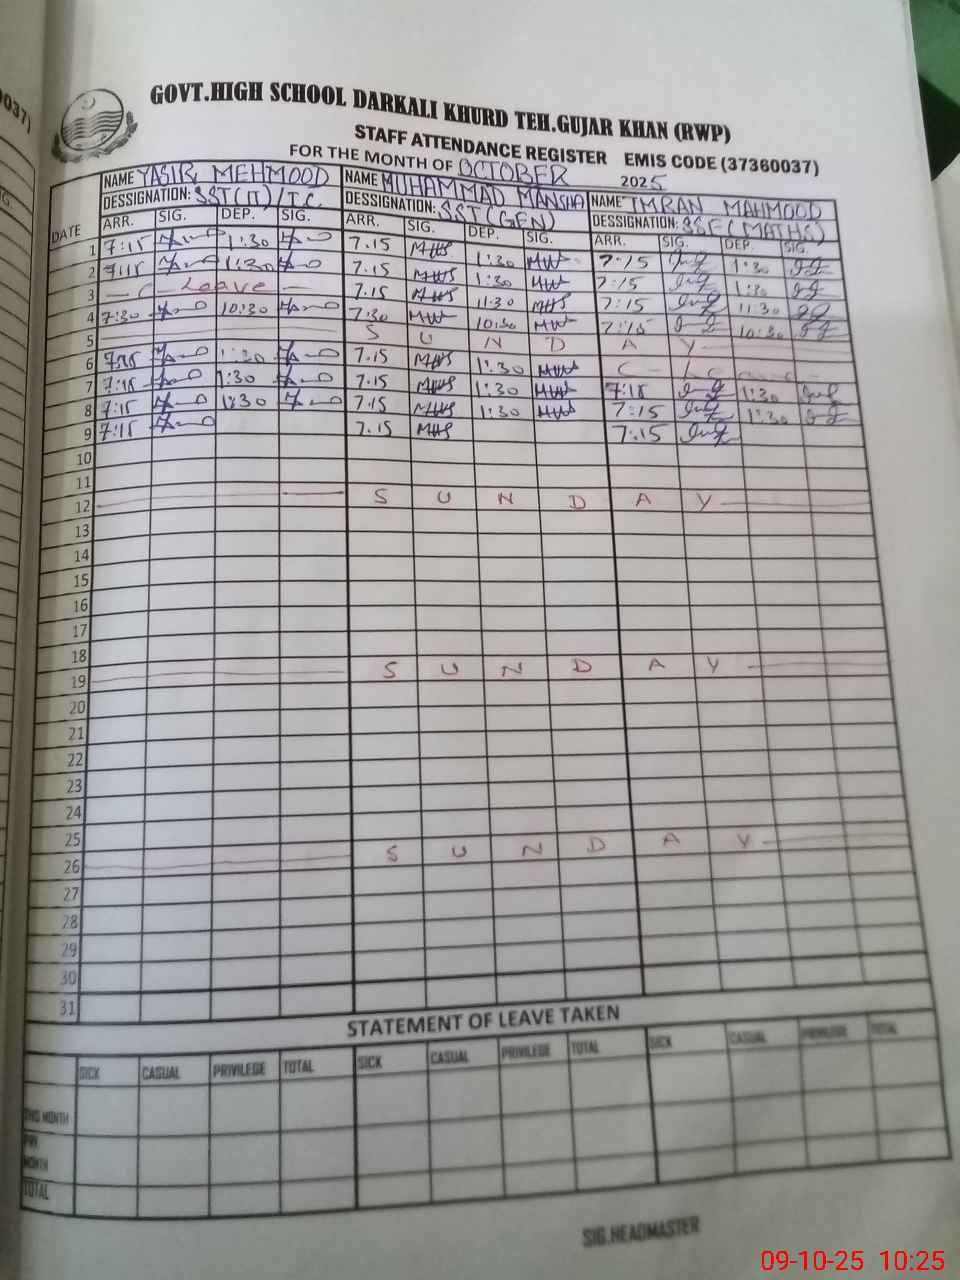 0037)
GOVT.HIGH SCHOOL DARKALI KHURD TEH.GUJAR KHAN (RWP)
STAFF ATTENDANCE REGISTER EMIS CODE (37360037)
FOR THE MONTH OF OCTOBER 2025
NAME YASIR MEHMOOD NAME MUHAMMAD MANSHA NAME IMRAN MAHMOOD
DESSIGNATION: SST(IT)/T.C DESSIGNATION: SST(GEN) DESSIGNATION: SSE(MATHS)
DATE ARR. SIG. DEP. SIG. ARR. SIG. DEP. SIG. ARR. SIG. DEP. SIG.
1 7:15 1:30 7.15 MHS 1:30 7:15 1:30
2 7:15 1:30 7.15 MHS 1:30 7:15 1:30
3 C - Leave 7.15 MHS 11:30 MHS 7:15 11:30
4 7:30 10:30 7:30 10:30 7:15 10:30
5 S U N D A Y
6 7:15 1:30 7.15 MHS 1:30 C - Leave
7 7:15 1:30 7.15 MHS 1:30 7:15 1:30
8 7:15 1:30 7.15 MHS 1:30 7:15 1:30
9 7:15 7.15 MHS 7:15
10
11
12 S U N D A Y
13
14
15
16
17
18
19 S U N D A Y
20
21
22
23
24
25
26 S U N D A Y
27
28
29
30
31
STATEMENT OF LEAVE TAKEN
SICK CASUAL PRIVILEGE TOTAL SICK CASUAL PRIVILEGE TOTAL SICK CASUAL PRIVILEGE TOTAL
THIS MONTH
PRV
MONTH
TOTAL
SIG.HEADMASTER
09-10-25 10:25